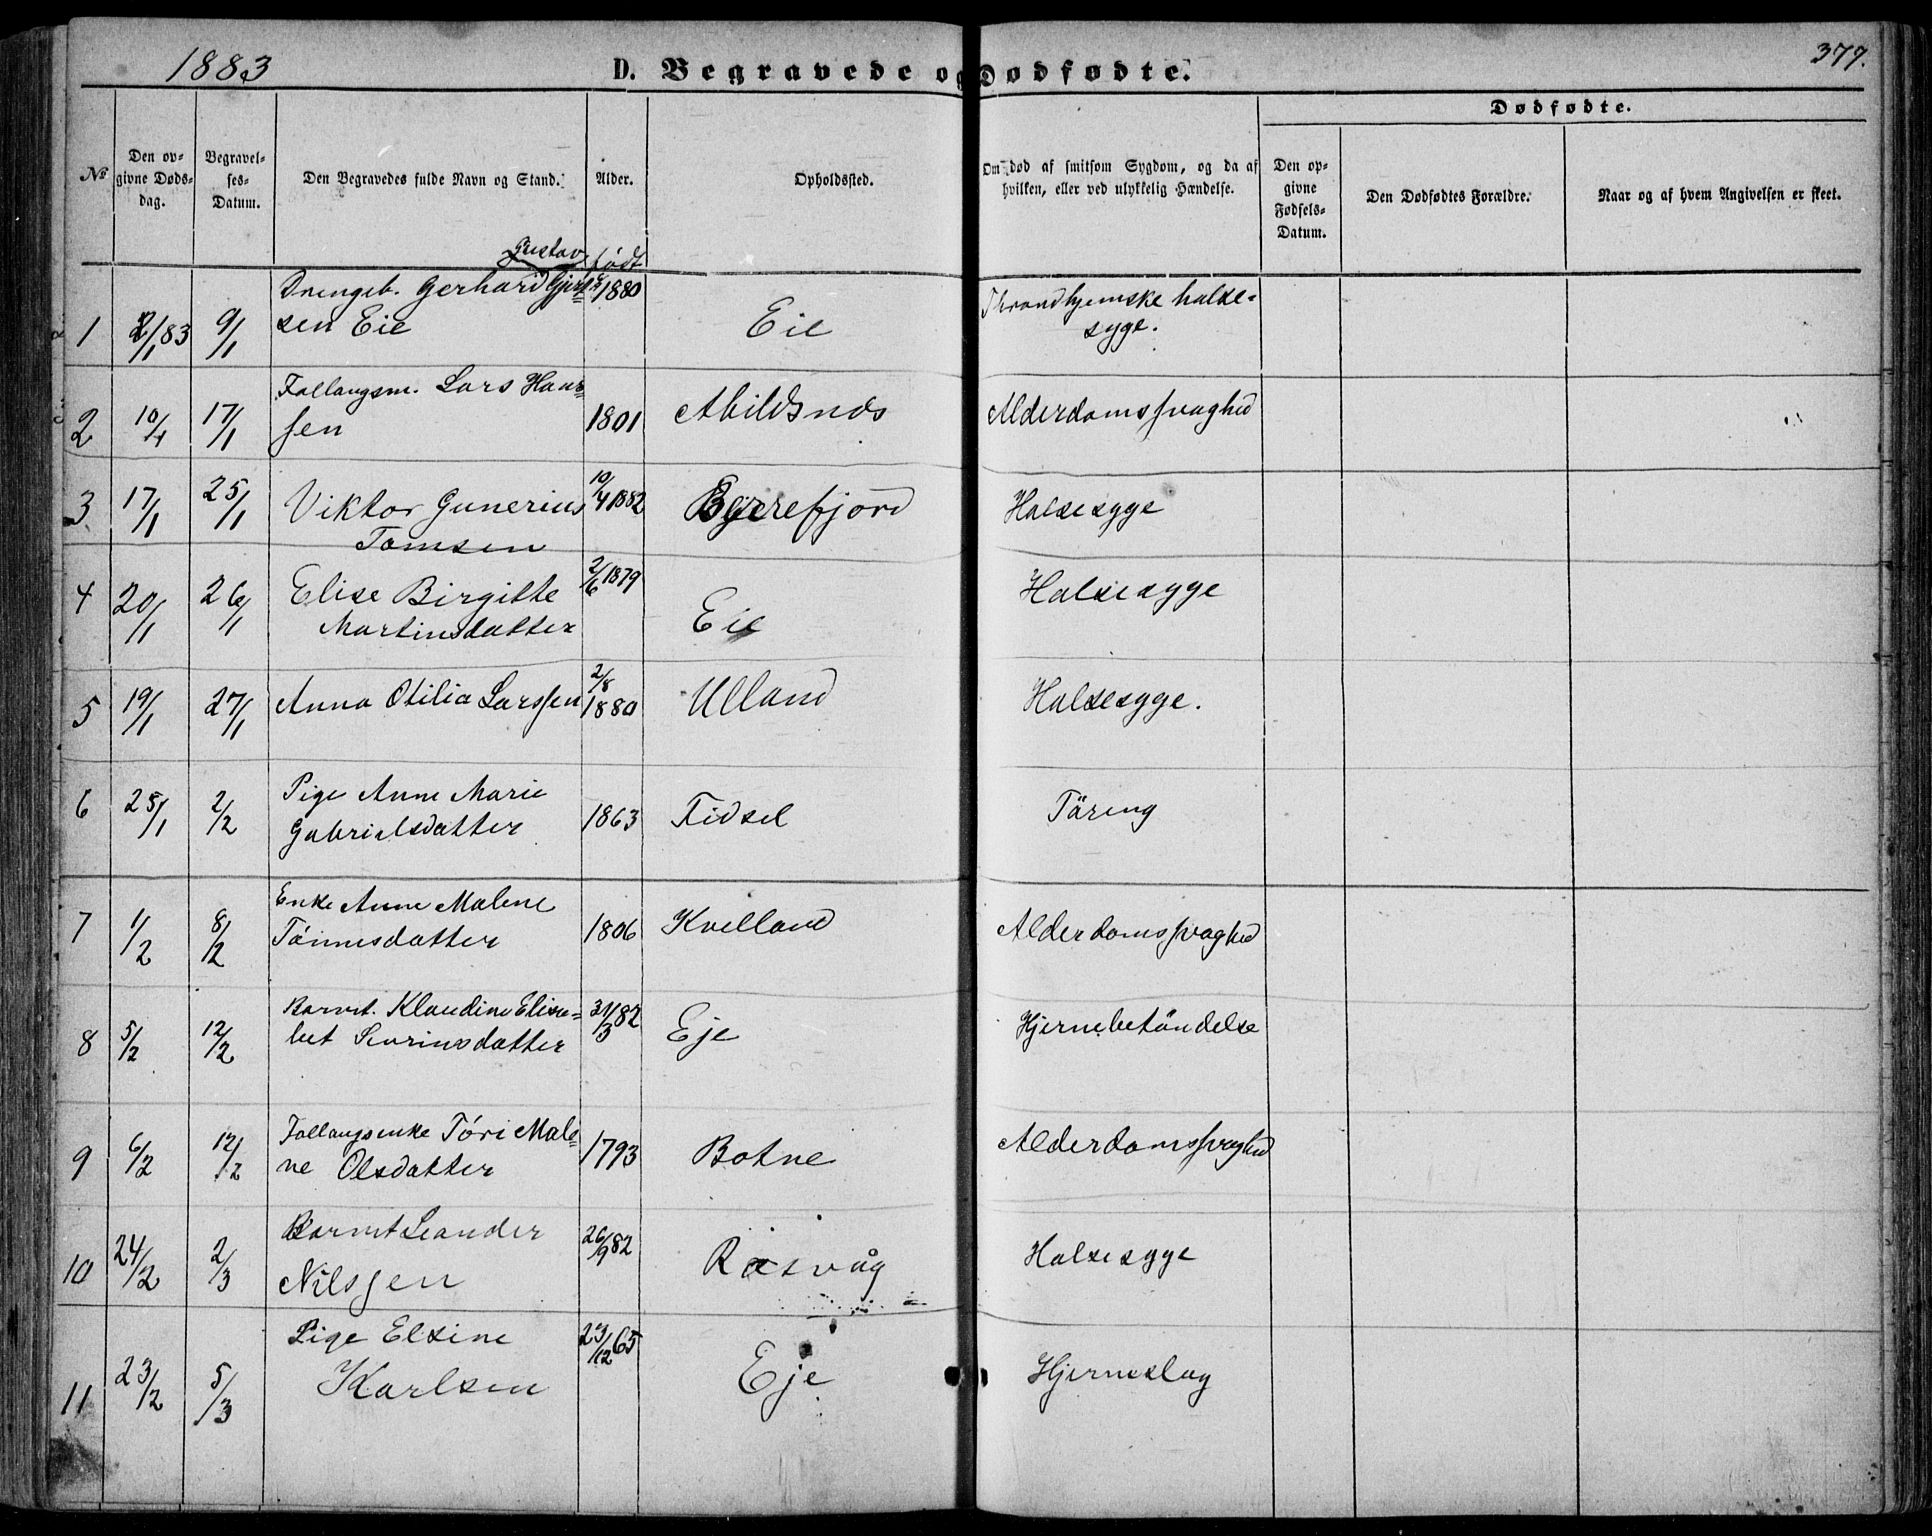 1883
D. Begravede og Dødfødte.
377.
Dødfødte.
№
Den opgivne Dødsdag.
Begravelses-Datum.
Den Begravedes fulde Navn og Stand.
Alder.
Opholdssted.
Om død af smitsom Sygdom, og da af hvilken, eller ved ulykkelig Hændelse.
Den opgivne Fødsels-Datum.
Den Dødfødtes Forældre.
Naar og af hvem Angivelsen er skeet.
Gustav født
Drengeb. Gerhard 1880
Throndhjemske halse-
1 2/1 83 9/1 sen Eie Eie syge.
Follaugsm. Lars Han-
2 10/1 17/1 sen 1801 Abildsnes Alderdomssvaghed
3 17/1 25/1 Viktor Gunerius 10/4 1882 Halsesyge
Tomsen
4 20/1 26/1 Elise Birgitte 2/6 1879 Eie Halsesyge
Martinsdatter
5 19/1 27/1 Anna Otilia Larssen 2/8 1880 Ulland Halsesyge.
6 25/1 2/2 Pige Anne Marie
Gabrielsdatter 1863 Fidsel Täring
Enke Anne Malene
7 1/2 8/2 Tönnesdatter 1806 Kvelland Alderdomssvaghed
Barnet. Klaudine Elisa- 31/3 82
8 5/2 12/2 bet Severinsdatter Eje Hjernebetöndelse
Follaugsenke Töri Male-
9 6/2 12/2 ne Olsdatter 1793 Botne Alderdomssvaghed
Barnet Leander 26/9 82
10 24/2 2/3 Nilssen Rasvåg Halsesyge
Pige Elsine 23/12 65
11 23/2 5/3 Karlsen Eje Hjerneslag